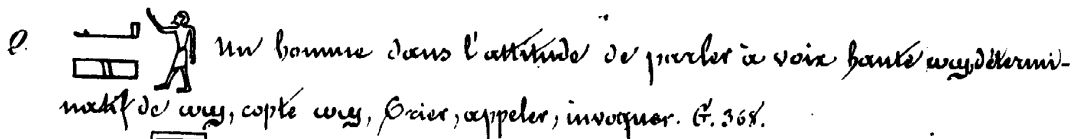 l. Un homme dans l'attitude de parler à voix haute ⲱϣ, détermi-
natif de ⲱϣ, copte ⲱϣ, Crier, appeler, invoquer. G. 368.